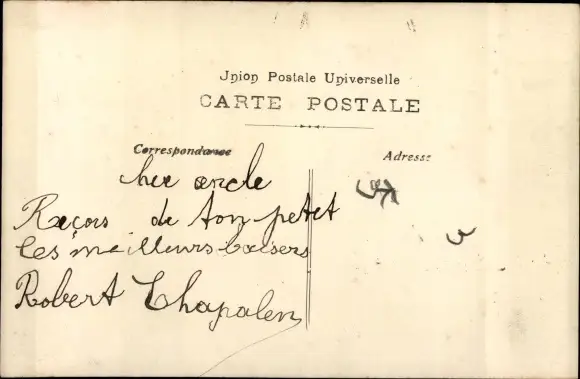 Union Postale Universelle
CARTE POSTALE
Correspondance
Adresse
her oncle
Reçois de ton petet
les meilleurs baisers
Robert Chapalen